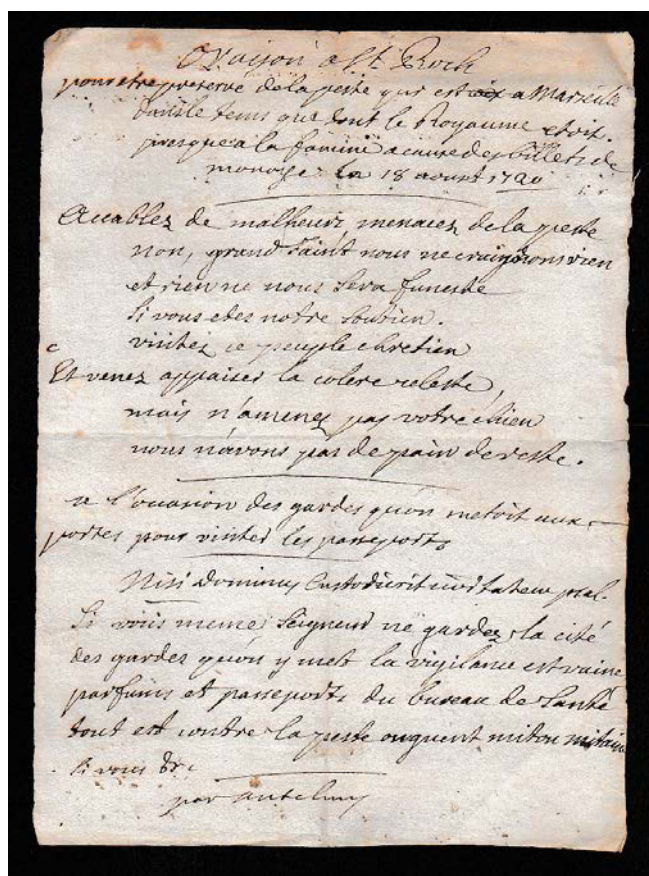 Oraison a St Roch
pour etre preservé de la peste qui est a Marseille
dans le tems que tout le Royaume etoit
presque a la famine a cause des billets de
monoye le 18 aoust 1720
Accablez de malheurs, menacez de la peste
non, grand saint nous ne craignons rien
et rien ne nous sera funeste
si vous etes notre soutien.
visitez ce peuple chretien
Et venez appaiser la colere celeste
mais n'amenez pas votre chien
nous n'avons pas de pain de reste.
a l'occasion des gardes qu'on metoit aux
portes pour visiter les passeports
Nisi Dominus Custodierit civitatem psal.
Si vous meme, Seigneur ne gardez la cité
des gardes qu'on y met la vigilance est vaine
parfums et passeports du bureau de santé
tout est contre la peste onguent miton mitaine
si vous &c
par antelmy